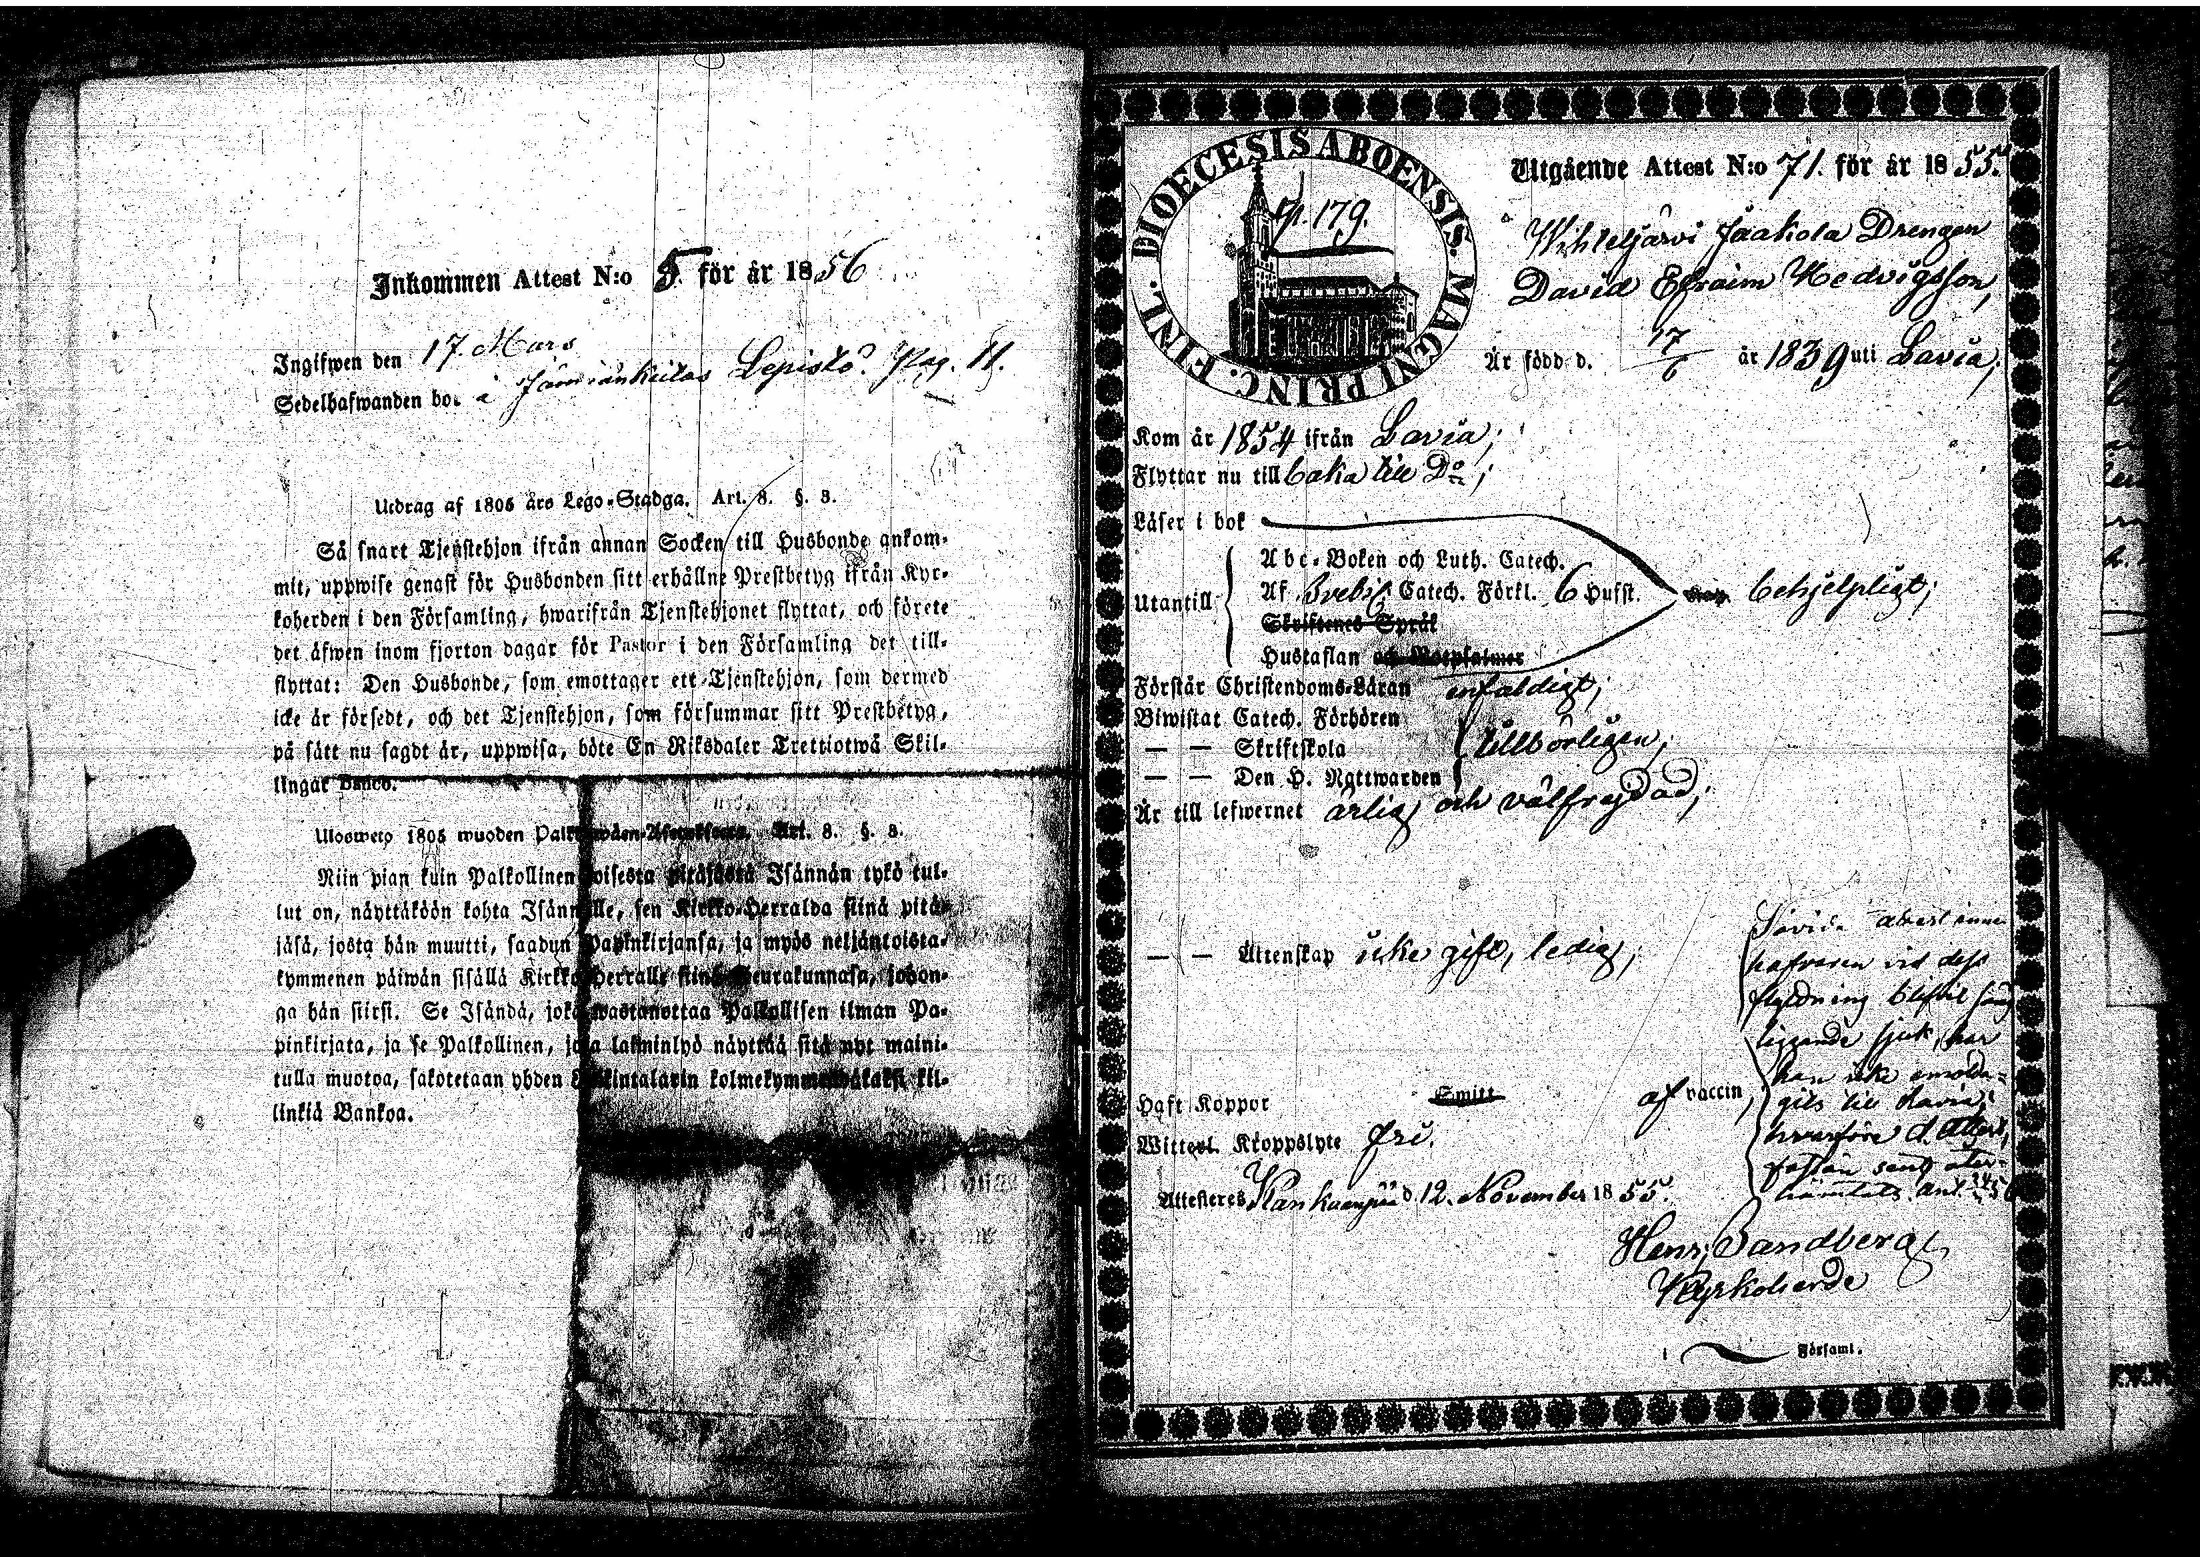 Inkommen Attest N:o 5. för år 1856
Ingifwen den 17. Mars
Sedelhafwanden bor i Lepistö. Pag. 11.
Utdrag af 1805 års Lego-Stadga. Art. 8. §. 3.
Så snart Tjenstehjon ifrån annan Socken till Husbonde ankom-
mit, uppwise genast för Husbonden sitt erhållne Prestbetyg ifrån Kyr-
koherden i den Församling, hwarifrån Tjenstehjonet flyttat, och förete
det äfwen inom fjorton dagar för Pastor i den Församling det till-
flyttat: Den Husbonde, som emottager ett Tjenstehjon, som dermed
icke är försedt, och det Tjenstehjon, som försummar sitt Prestbetyg,
på sätt nu sagdt är, uppwisa, böte En Riksdaler Trettiotwå Skil-
lingar Banco.
Ulosweto 1805 wuoden Palkowäen-Asetuksesta. Art. 8. §. 3.
Niin pian kuin Palkollinen toisesta pitäjästä Isännän tykö tul-
lut on, näyttäköön kohta Isännälle, sen Kirkko-Herralda siinä pitä-
jäsä, josta hän muutti, saadun Papinkirjansa, ja myös neljäntoista-
kymmenen päiwän sisällä Kirkko-Herralle siinä Seurakunnasa, johon-
ga hän siirsi. Se Isändä, joka wastanottaa Palkollisen ilman Pa-
pinkirjata, ja se Palkollinen, joka laiminlyö näyttää sitä nyt maini-
tulla muotoa, sakotetaan yhden Riikintalarin kolmekymmentäkaksi kil-
linkiä Bankoa.
DIOECESIS ABOENSIS. MAGNI PRINC. FINL.
p. 179.
Utgående Attest N:o 71. för år 1855.
Wihteljärvi Jaakola Drengen
David Efraim Hedvigsson,
Är född d. 17/6 år 1839 uti Lavia;
Kom år 1854 ifrån Lavia;
Flyttar nu till baka till D:o;
Läser i bok
Utantill
Abc-Boken och Luth. Catech.
Af Svebil. Catech. Förkl. 6 Hufst. behjelpligt;
Skriftenes Språk
Hustaflan och Botpsalmer
Förstår Christendoms-Läran enfaldigt;
Biwistat Catech. Förhören
— — Skriftskola tillbörligen;
— — Den H. Nattwarden
Är till lefwernet ärlig och välfrejdad;
— — Äktenskap icke gift, ledig;
Som d. attest inne-
hafvaren vid dess
flyttning blifvit säng
liggande sjuk, har
han icke anmälda-
gits till Lavia,
hvarföre d. attest,
Haft Koppor Smitt af vaccin,
Witterl. Kroppslyte fri.
Attesteres Kankaanpää d. 12. November 1855.
Henr. Sandberg,
Kyrkoherde
i Församl.